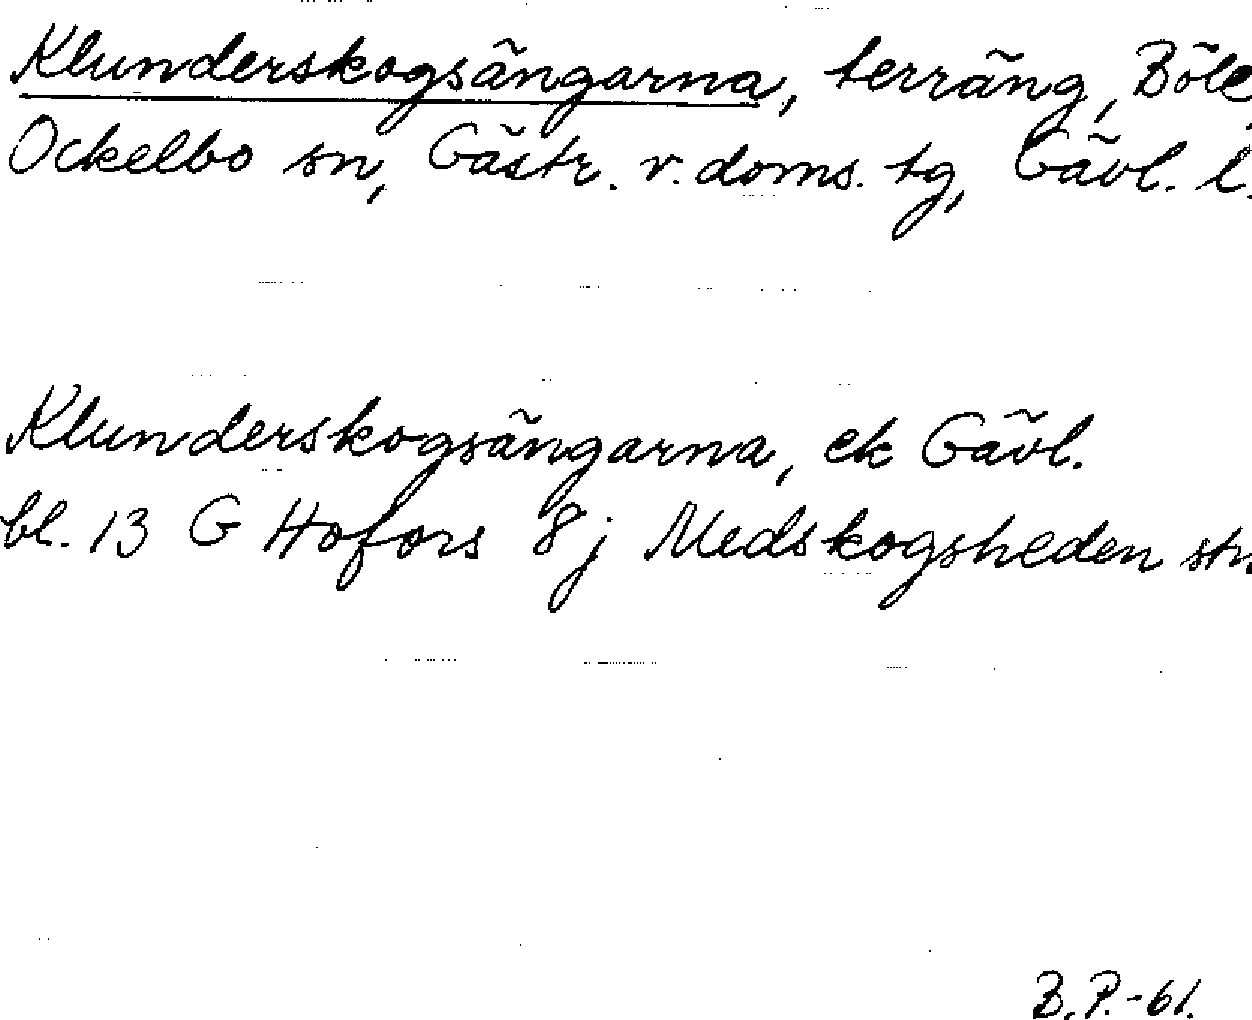 Klunderskogsängarna, terräng, Böle,
Ockelbo sn, Gästr. v. doms. tg, Gävl. l.
Klunderskogsängarna, ek Gävl.
bl. 13 G Hofors 8j Medskogsheden stn.
B.P.-61.